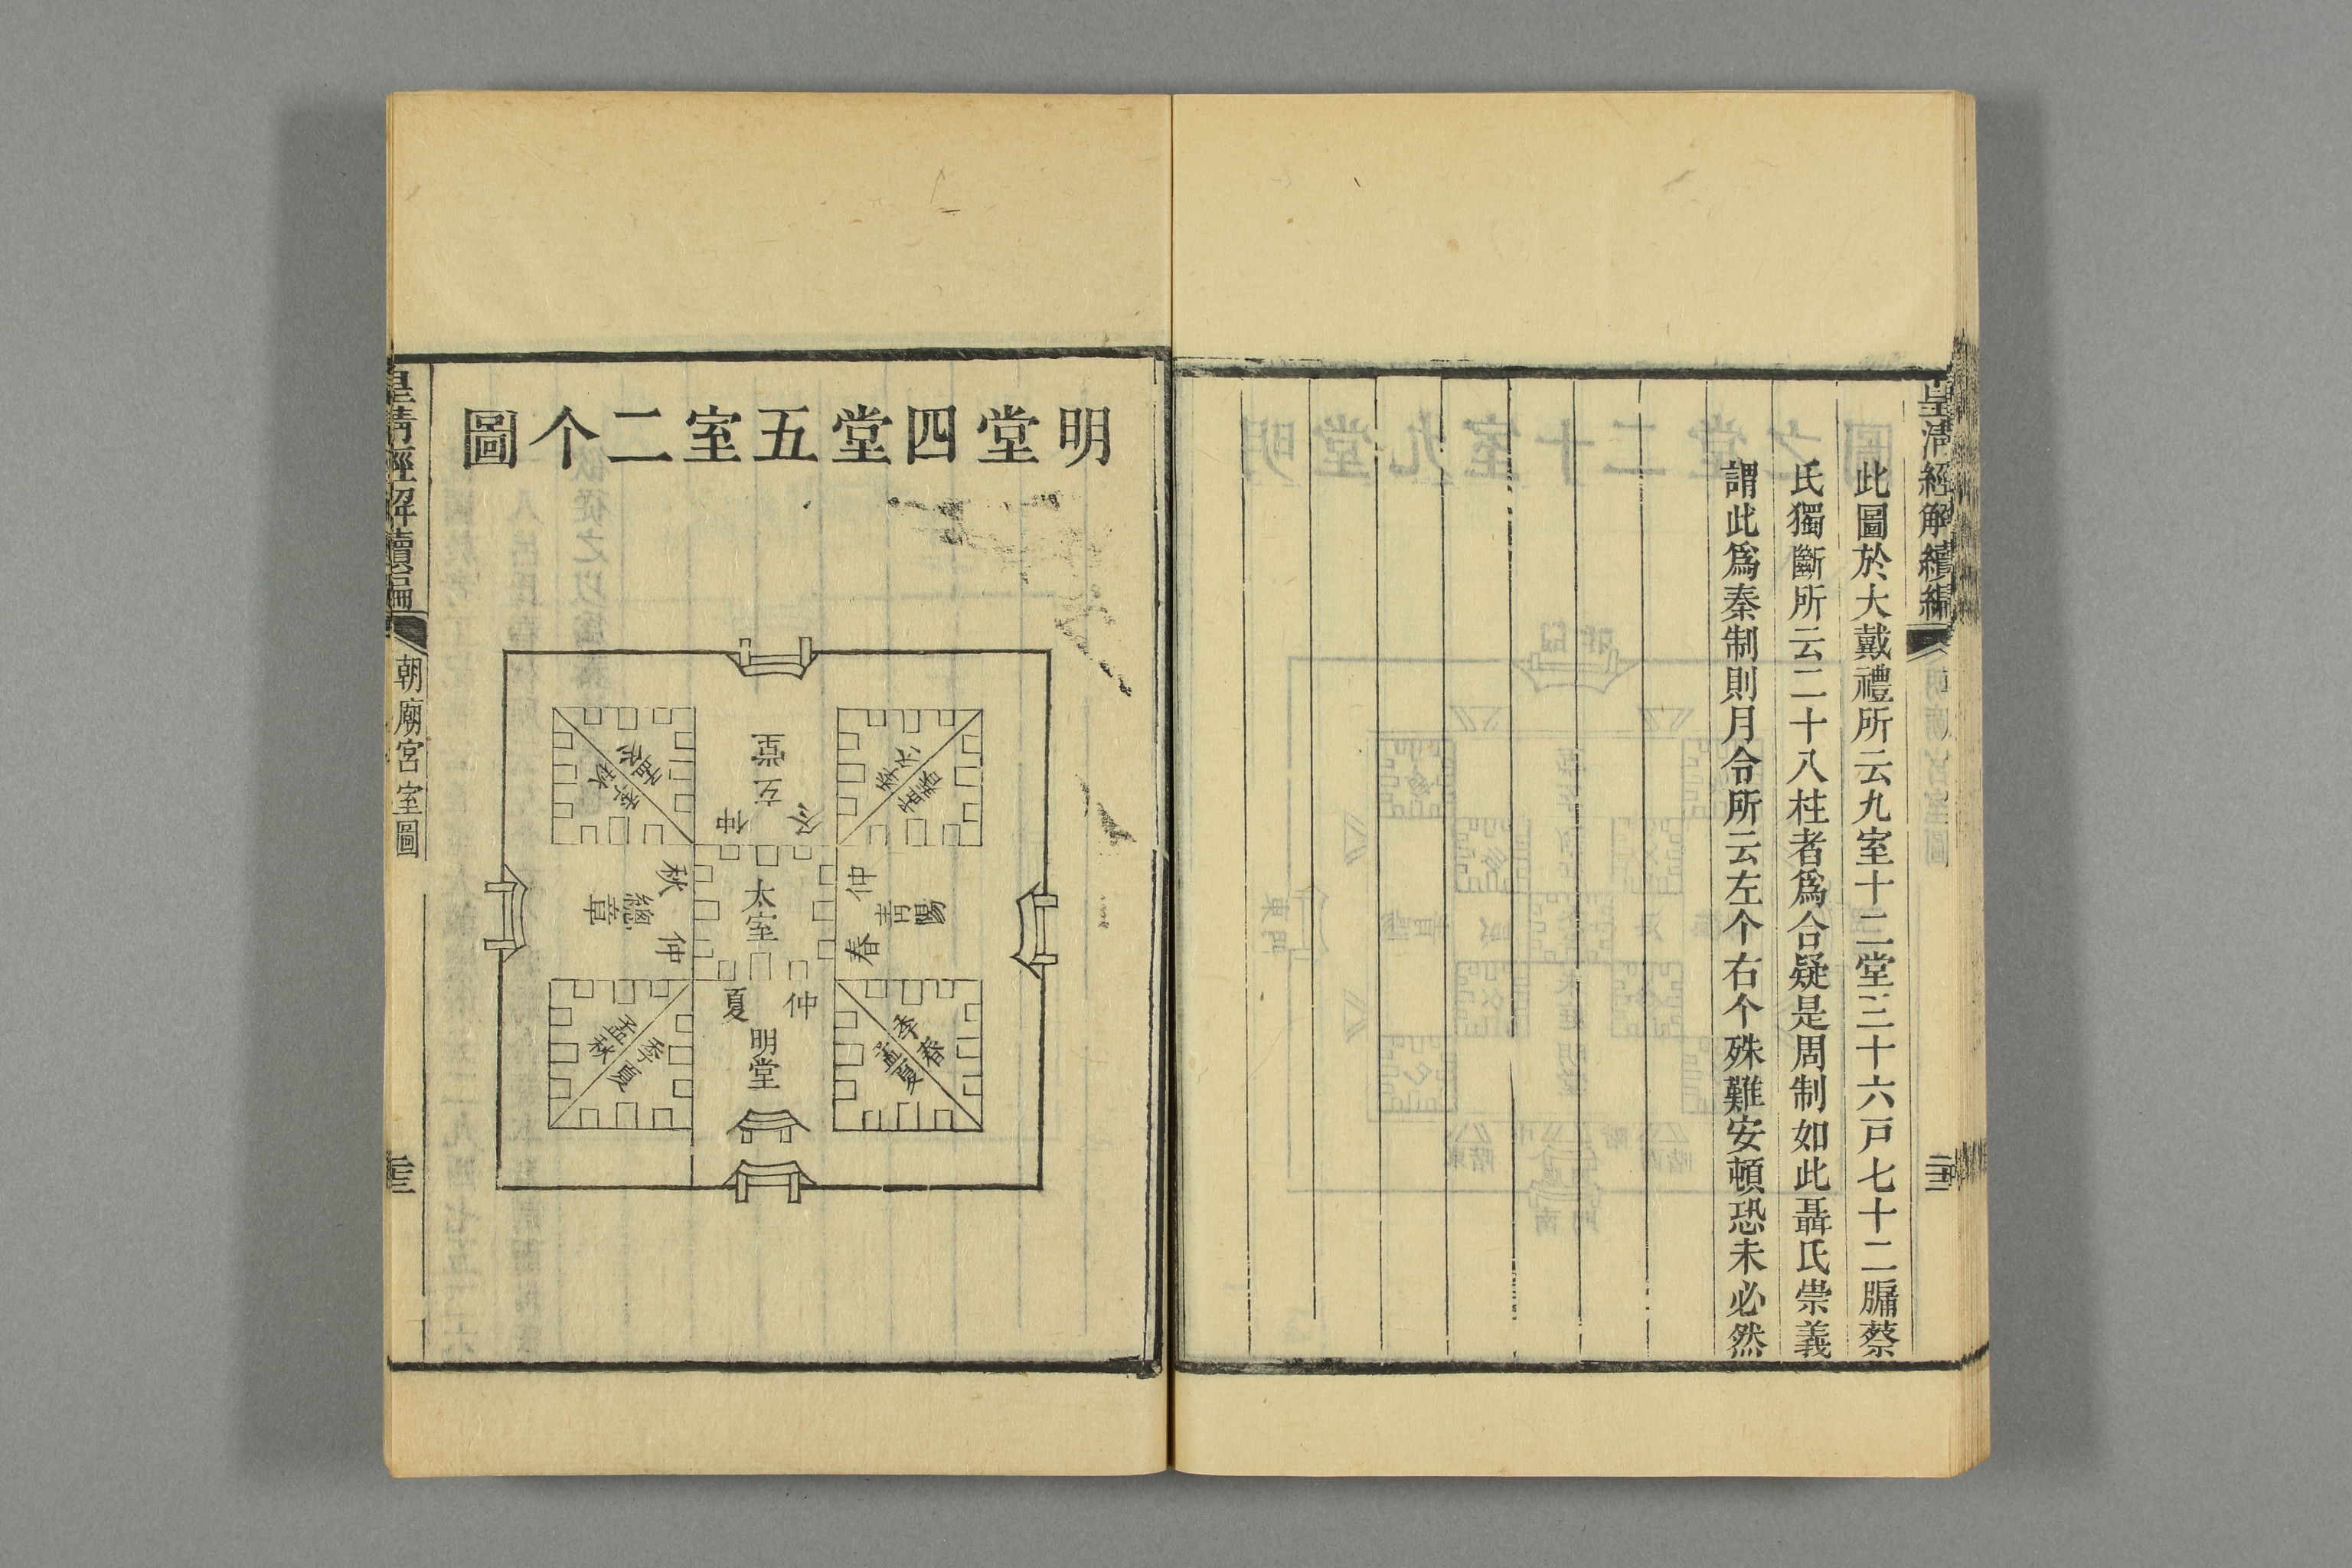 皇淸經解續編
此圖於大戴禮所云九室十二堂三十六戸七十二牖蔡
氏獨斷所云二十八柱者爲合疑是周制如此聶氏崇義
謂此爲秦制則月令所云左个右个殊難安頓恐未必然
明堂四堂五室二个圖
玄堂
仲冬
季冬
孟春
孟冬
季秋
太室
仲春
青陽
仲秋
總章
仲夏
明堂
季春
孟夏
孟秋
季夏
皇淸經解續編
朝廟宮室圖